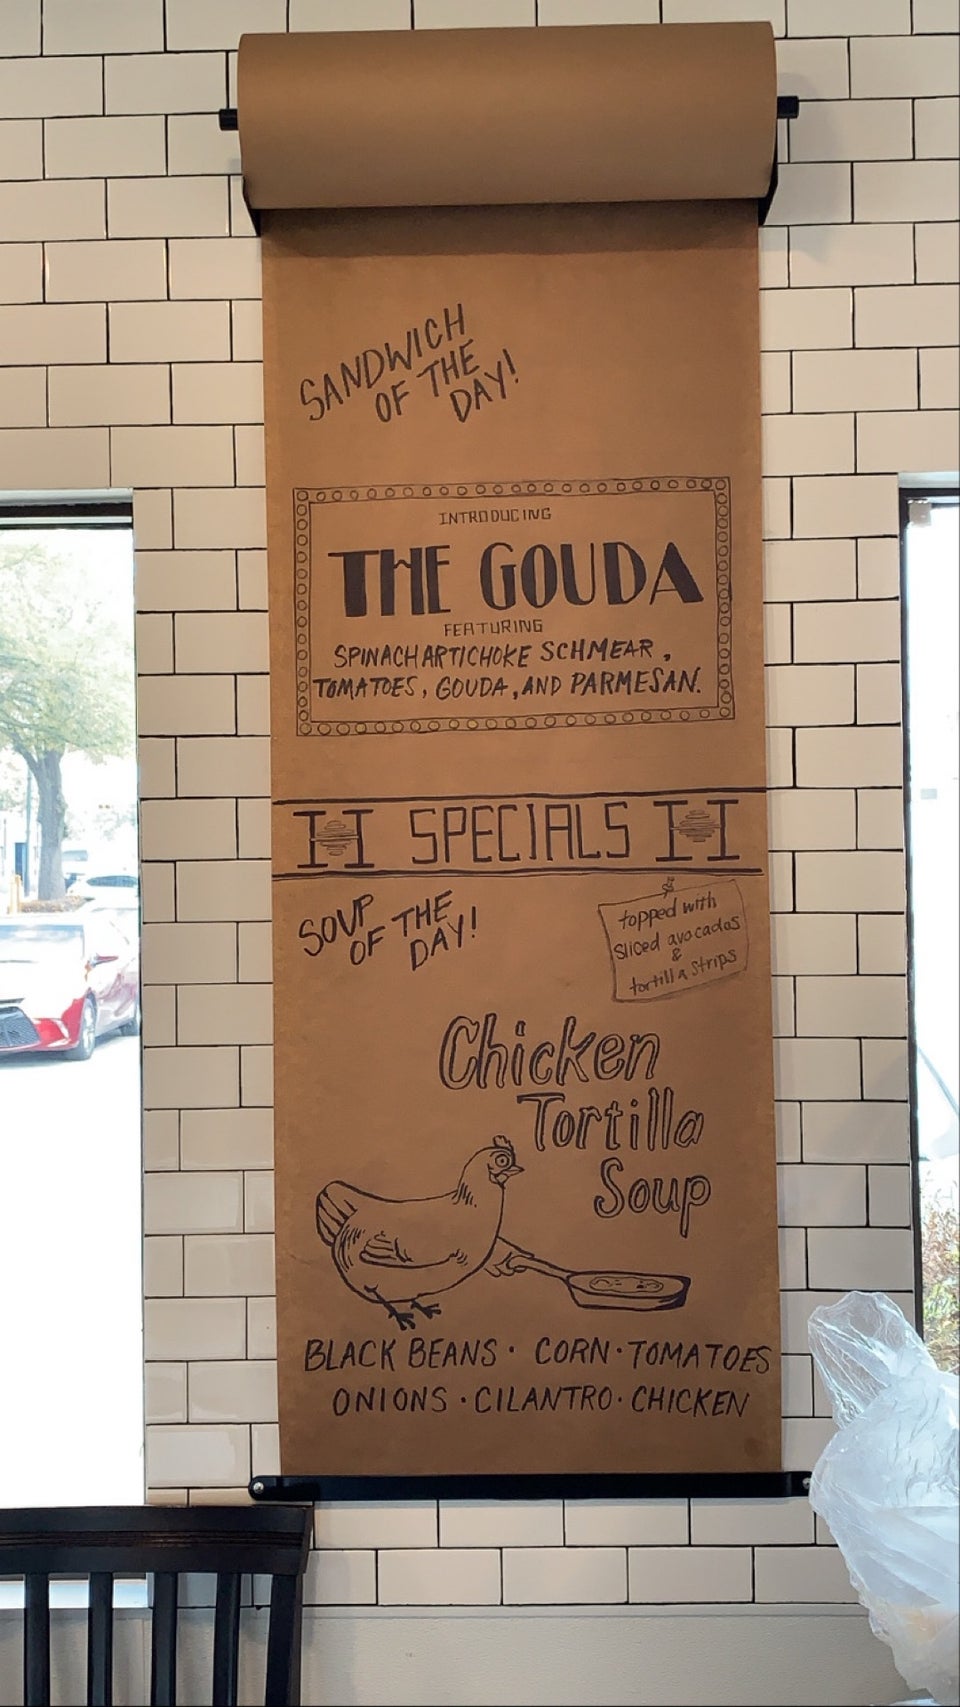 SANDWICH
OF THE
DAY!
INTRODUCING
THE GOUDA
FEATURING
SPINACH ARTICHOKE SCHMEAR,
TOMATOES, GOUDA, AND PARMESAN.
SPECIALS
SOUP
OF THE
DAY!
topped with
sliced avocados
&
tortilla strips
Chicken
Tortilla
Soup
BLACK BEANS · CORN · TOMATOES
ONIONS · CILANTRO · CHICKEN